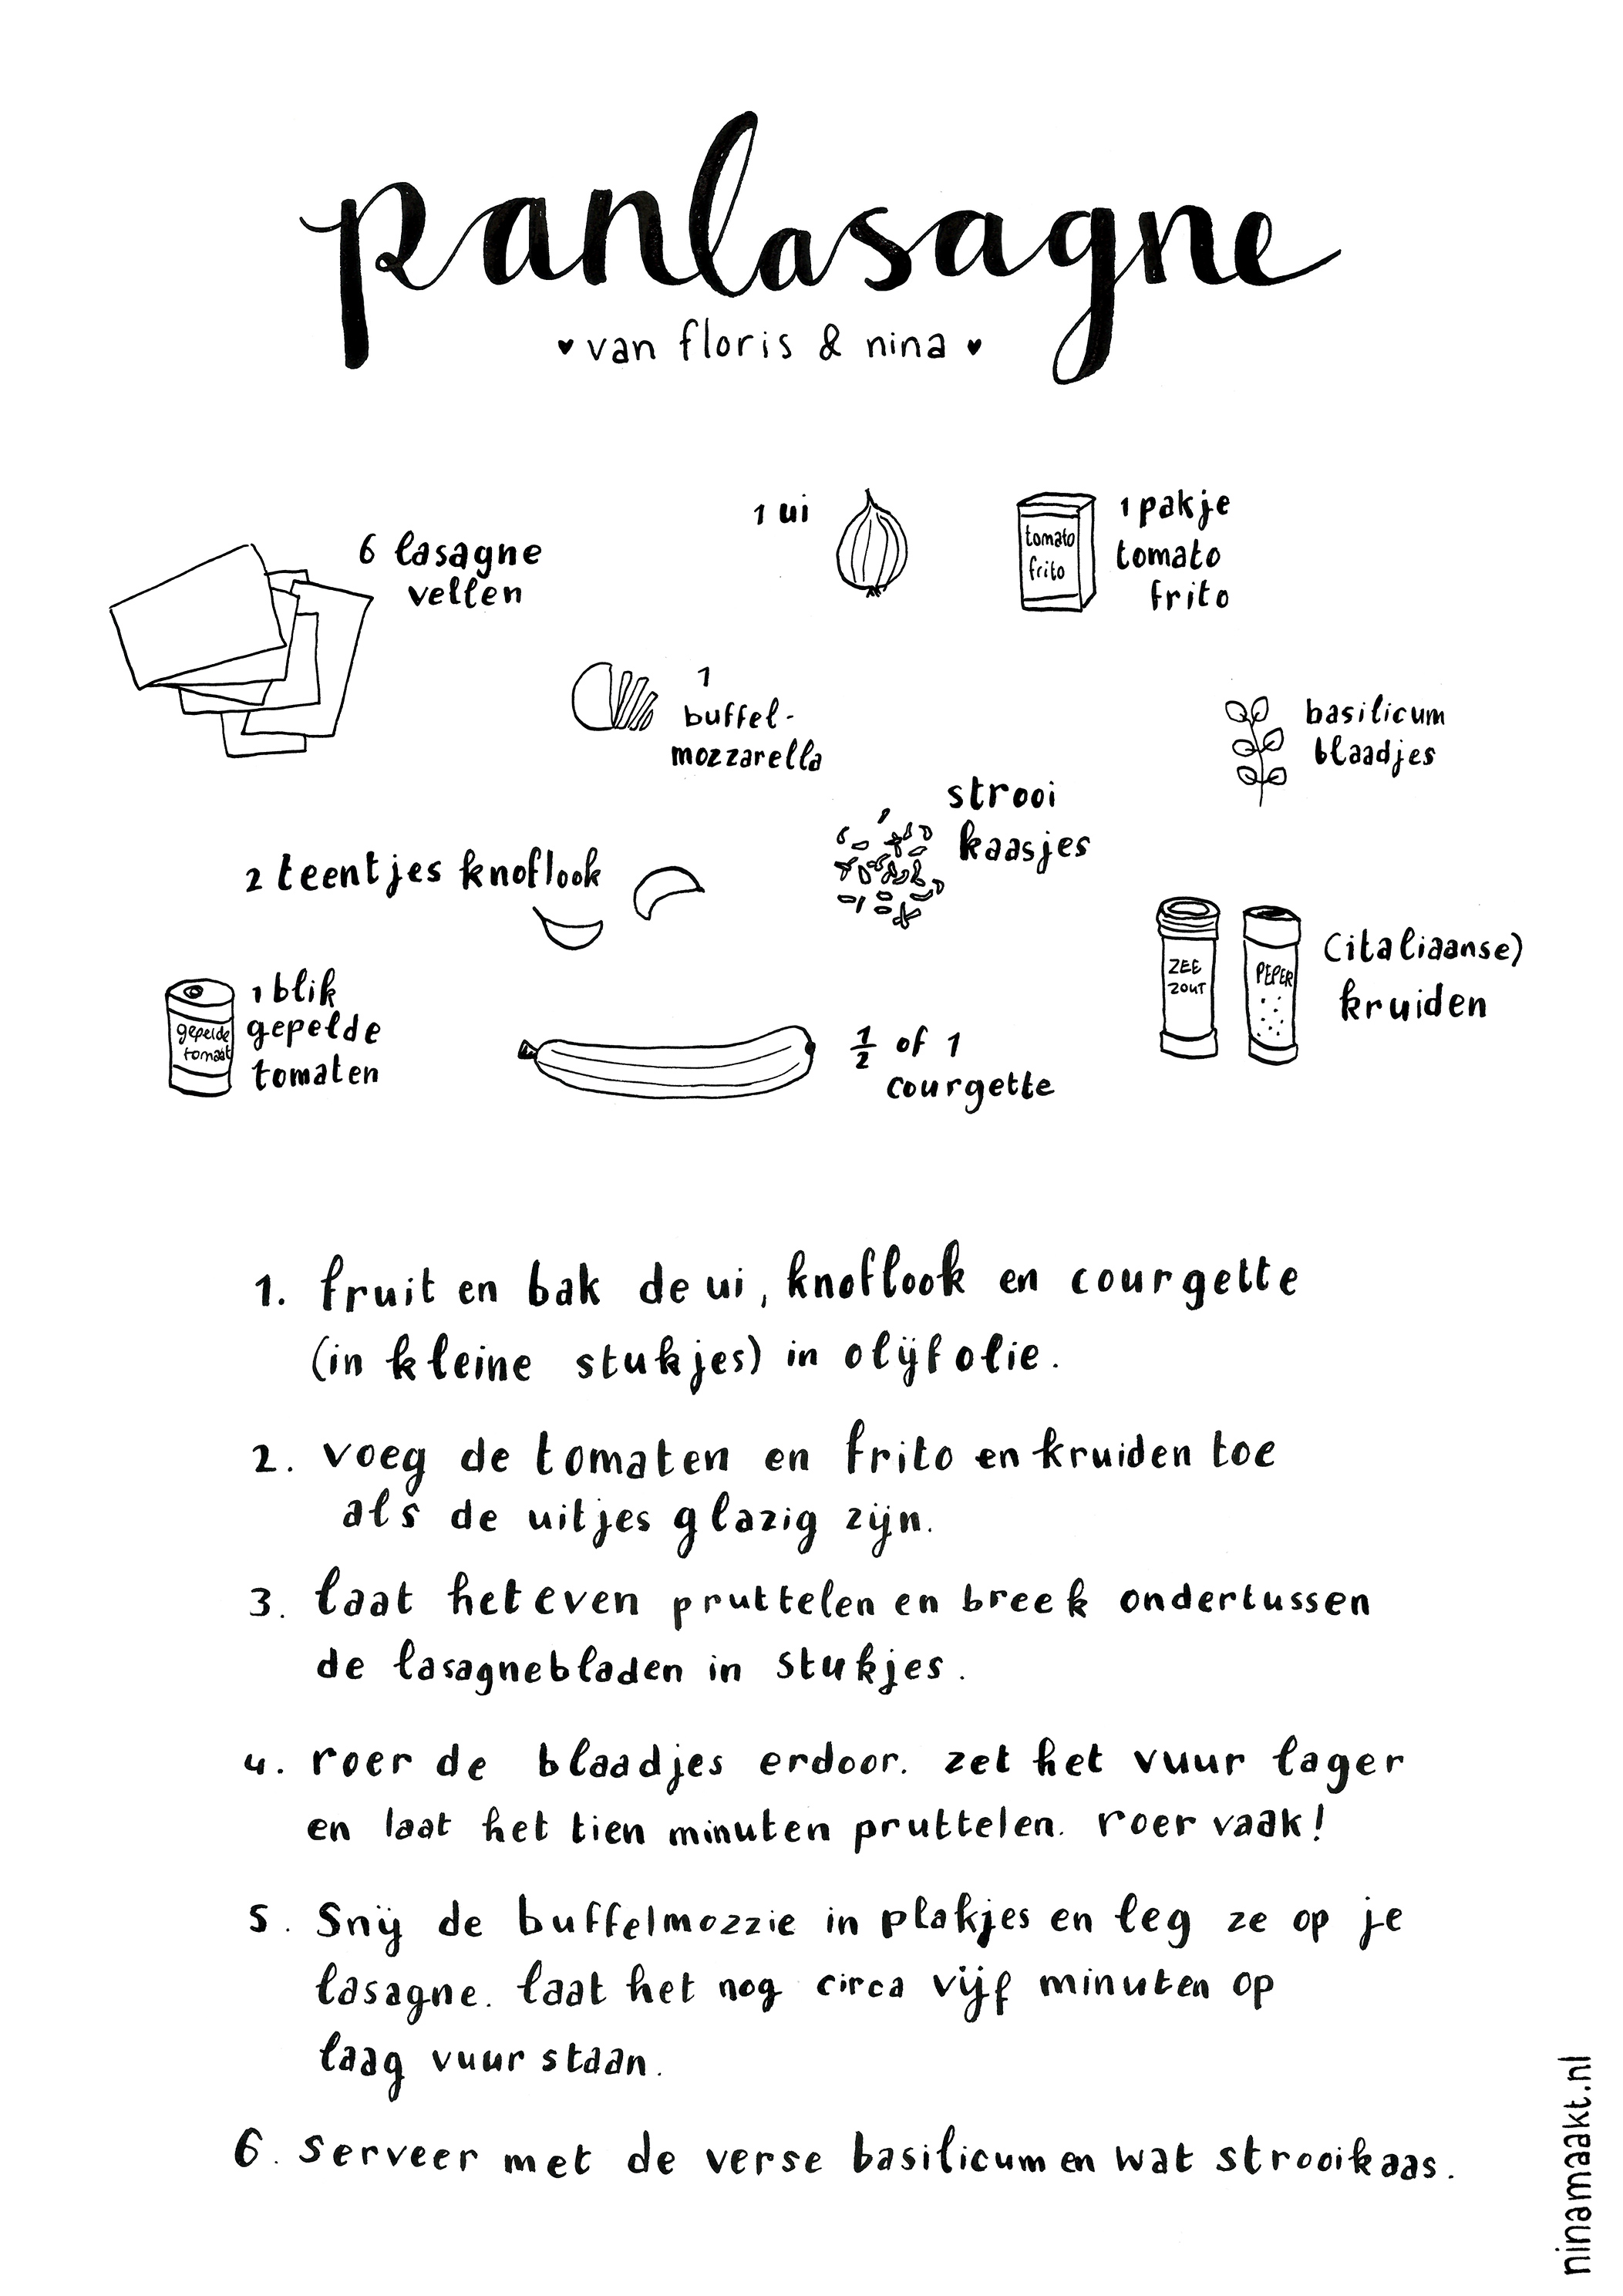 panlasagne
♥ van floris & nina ♥
6 lasagne
vellen
1 ui
tomato
frito
1 pakje
tomato
frito
1
buffel-
mozzarella
basilicum
blaadjes
strooi
kaasjes
2 teentjes knoflook
ZEE
ZOUT
PEPER
(italiaanse)
kruiden
gepelde
tomaat
1 blik
gepelde
tomaten
½ of 1
courgette
1. fruit en bak de ui, knoflook en courgette
(in kleine stukjes) in olijfolie.
2. voeg de tomaten en frito en kruiden toe
als de uitjes glazig zijn.
3. laat het even pruttelen en breek ondertussen
de lasagnebladen in stukjes.
4. roer de blaadjes erdoor. zet het vuur lager
en laat het tien minuten pruttelen. roer vaak!
5. Snij de buffelmozzie in plakjes en leg ze op je
lasagne. laat het nog circa vijf minuten op
laag vuur staan.
6. serveer met de verse basilicum en wat strooikaas.
ninamaakt.nl